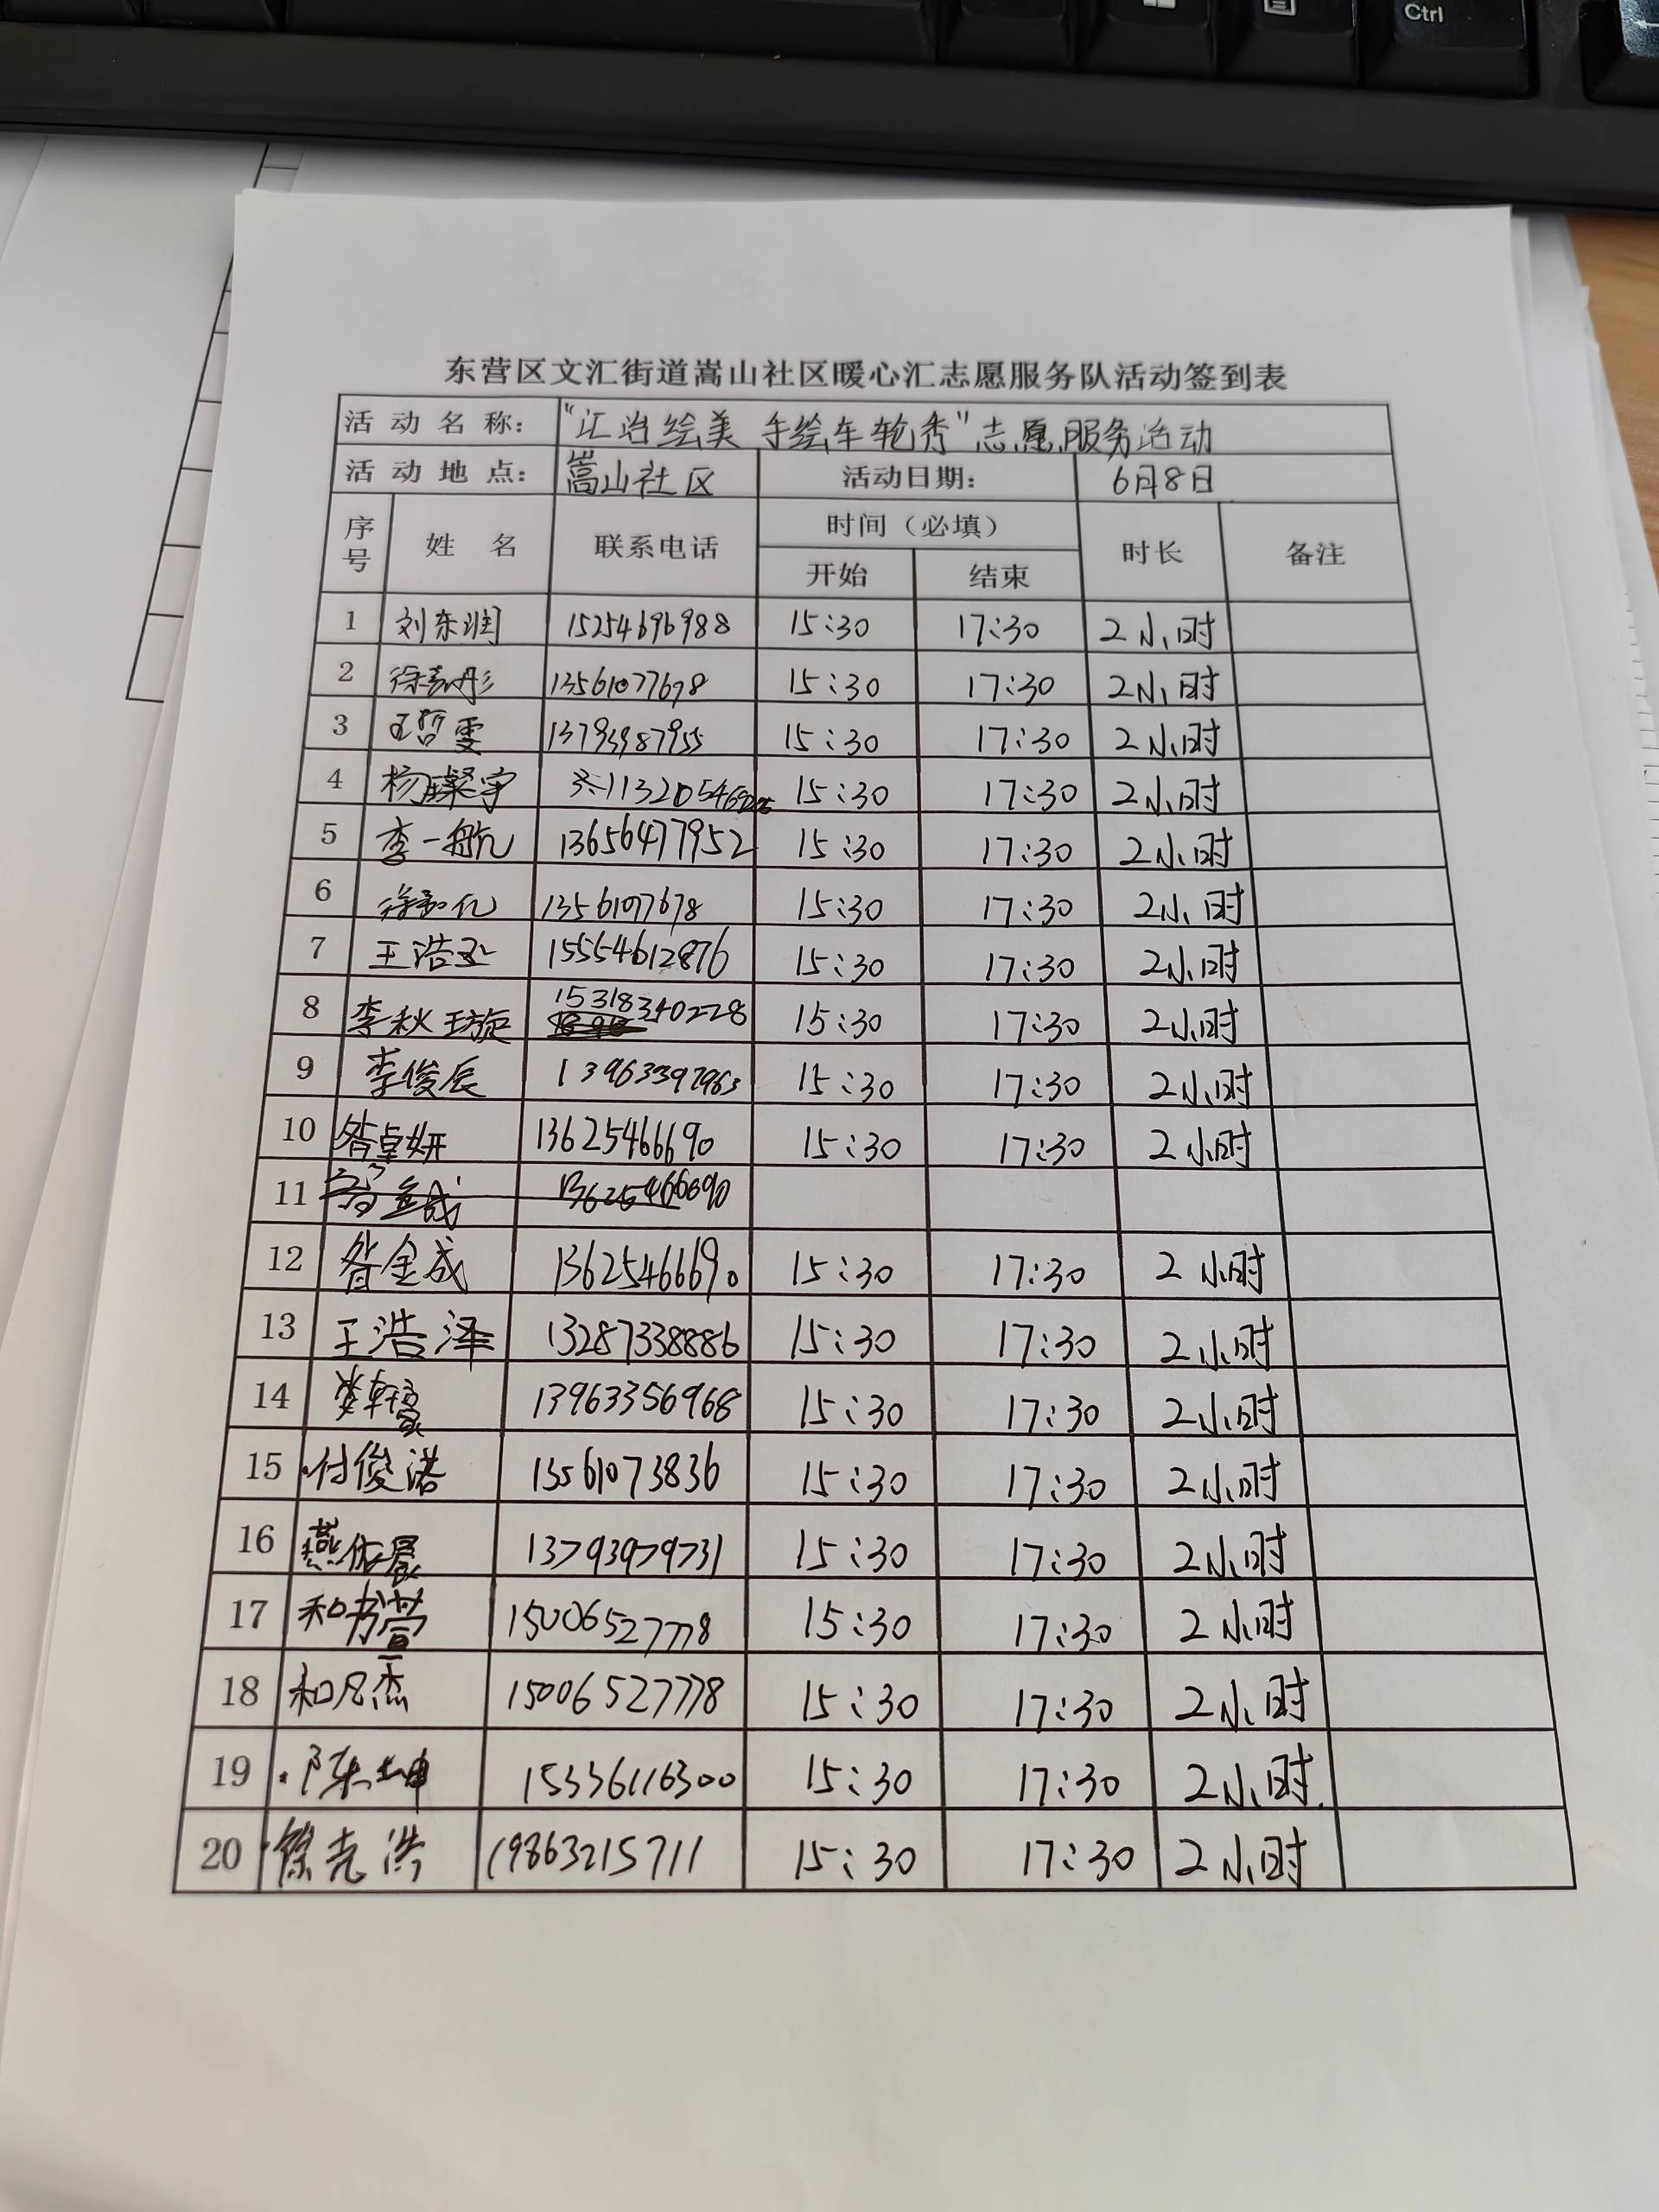 Ctrl
东营区文汇街道嵩山社区暖心汇志愿服务队活动签到表
活动名称： “汇治绘美 手绘车轮秀”志愿服务活动
活动地点： 嵩山社区 活动日期： 6月8日
序号 姓名 联系电话 时间（必填） 时长 备注
开始 结束
1 刘东润 15254696988 15:30 17:30 2小时
2 13561077678 15:30 17:30 2小时
3 王哲雯 13793987955 15:30 17:30 2小时
4 杨璨宇 15:30 17:30 2小时
5 李一航 13656477952 15:30 17:30 2小时
6 13561077678 15:30 17:30 2小时
7 15554612876 15:30 17:30 2小时
8 李秋璇 15318340228 15:30 17:30 2小时
9 李俊辰 13963397963 15:30 17:30 2小时
10 昝卓妍 13625466690 15:30 17:30 2小时
11 13625466690
12 昝金成 13625466690 15:30 17:30 2小时
13 王浩泽 13287338886 15:30 17:30 2小时
14 娄轩豪 13963356968 15:30 17:30 2小时
15 付俊浩 13561073836 15:30 17:30 2小时
16 燕依晨 13793979731 15:30 17:30 2小时
17 和书萱 15006527778 15:30 17:30 2小时
18 和凡杰 15006527778 15:30 17:30 2小时
19 陈坤 15336116300 15:30 17:30 2小时
20 徐克浩 19863215711 15:30 17:30 2小时